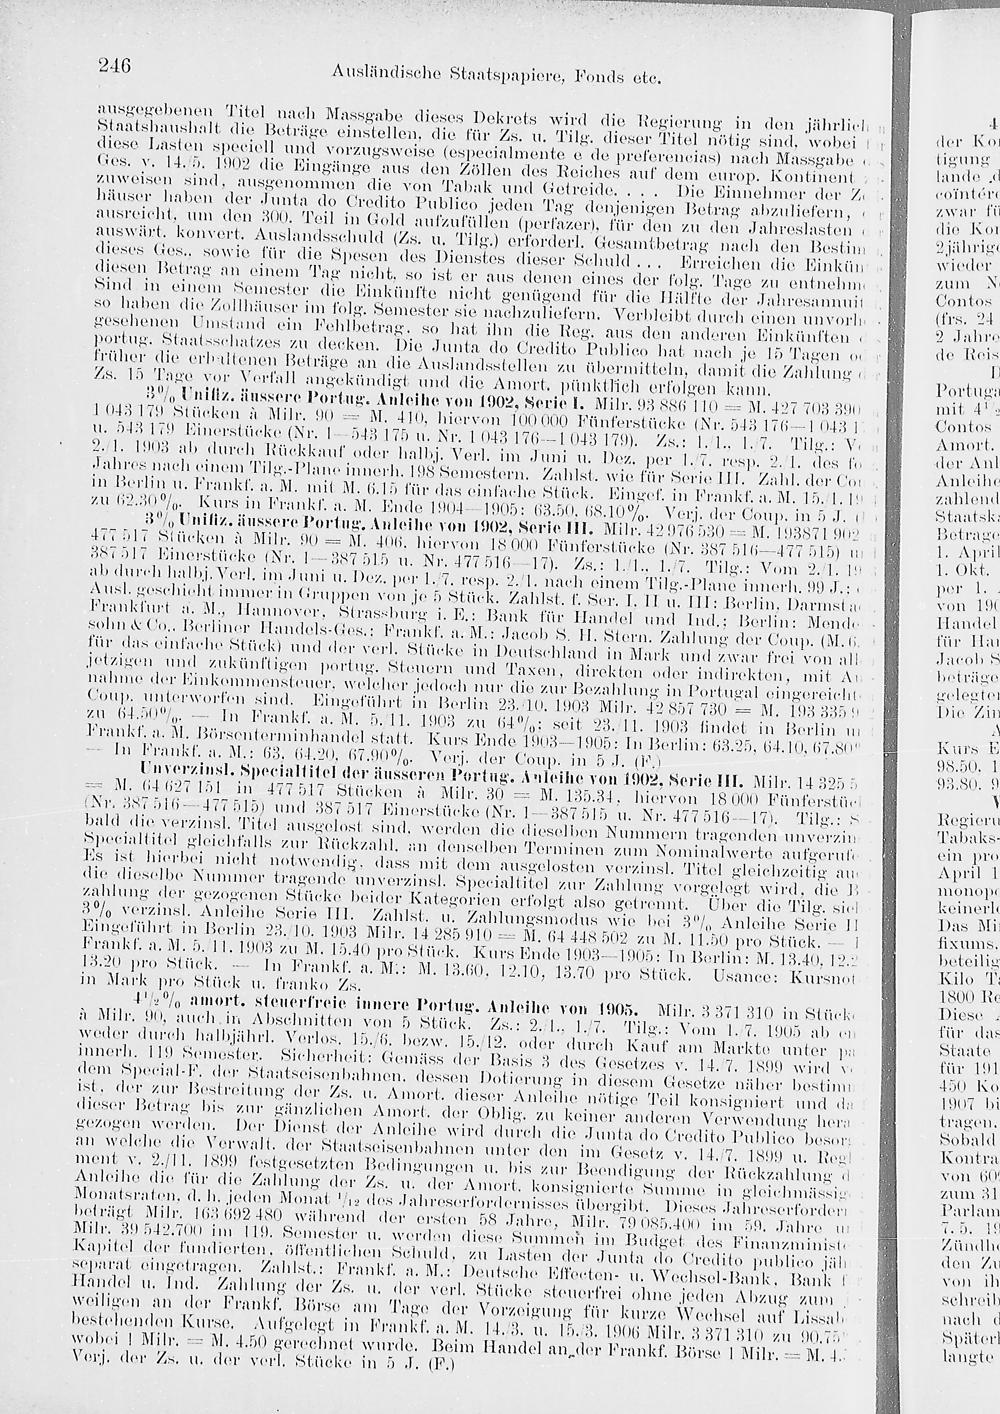 246
Ausländische Staatspapiere, Fonds etc.
ausgegebenen Titel nach Massgabe dieses Dekrets wird die Regierung in den jährlich
Staatshaushalt die Beträge einstellen, die für Zs. u. Tilg. dieser Titel nötig sind, wobei
diese Lasten speciell und vorzugsweise (especialmente e de preferencias) nach Massgabe
Ges. v. 14./5. 1902 die Eingänge aus den Zöllen des Reiches auf dem europ. Kontinent
zuweisen sind, ausgenommen die von Tabak und Getreide. . . . Die Einnehmer der Z
häuser haben der Junta do Credito Publico jeden Tag denjenigen Betrag abzuliefern,
ausreicht, um den 300. Teil in Gold aufzufüllen (perfazer), für den zu den Jahreslasten
auswärt. konvert. Auslandsschuld (Zs. u. Tilg.) erforderl. Gesamtbetrag nach den Bestim
dieses Ges., sowie für die Spesen des Dienstes dieser Schuld . . . Erreichen die Einkün
diesen Betrag an einem Tag nicht, so ist er aus denen eines der folg. Tage zu entnehm
Sind in einem Semester die Einkünfte nicht genügend für die Hälfte der Jahresannuit
so haben die Zollhäuser im folg. Semester sie nachzuliefern. Verbleibt durch einen unvorh
gesehenen Umstand ein Fehlbetrag, so hat ihn die Reg. aus den anderen Einkünften
portug. Staatsschatzes zu decken. Die Junta do Credito Publico hat nach je 15 Tagen
früher die erhaltenen Beträge an die Auslandsstellen zu übermitteln, damit die Zahlung
Zs. 15 Tage vor Verfall angekündigt und die Amort. pünktlich erfolgen kann.
3% Unifiz. äussere Portug. Anleihe von 1902, Serie I. Milr. 93 886 110 = M. 427 703 390
1 043 179 Stücken à Milr. 90 = M. 410, hiervon 100 000 Fünferstücke (Nr. 543 176—1 043 1
u. 543 179 Einerstücke (Nr. 1—543 175 u. Nr. 1 043 176—1 043 179). Zs.: 1./1., 1./7. Tilg.: V
2./1. 1903 ab durch Rückkauf oder halbj. Verl. im Juni u. Dez. per 1./7. resp. 2./1. des fo
Jahres nach einem Tilg.-Plane innerh. 198 Semestern. Zahlst. wie für Serie III. Zahl. der Co
in Berlin u. Frankf. a. M. mit M. 6.15 für das einfache Stück. Eingef. in Frankf. a. M. 15./1. 19
zu 62.30%. Kurs in Frankf. a. M. Ende 1904—1905: 63.50, 68.10%. Verj. der Coup. in 5 J.
3% Unifiz. äussere Portug. Anleihe von 1902, Serie III. Milr. 42 976 530 = M. 193871 902
477 517 Stücken à Milr. 90 = M. 406, hiervon 18 000 Fünferstücke (Nr. 387 516—477 515) u
387 517 Einerstücke (Nr. 1—387 515 u. Nr. 477 516—17). Zs.: 1./1., 1./7. Tilg.: Vom 2./1. 19
ab durch halbj. Verl. im Juni u. Dez. per 1./7. resp. 2./1. nach einem Tilg.-Plane innerh. 99 J.:
Ausl. geschieht immer in Gruppen von je 5 Stück. Zahlst. f. Ser. I, II u. III: Berlin, Darmsta
Frankfurt a. M., Hannover, Strassburg i. E.: Bank für Handel und Ind.; Berlin: Mende
sohn & Co., Berliner Handels-Ges.; Frankf. a. M.: Jacob S. H. Stern. Zahlung der Coup. (M. 6.
für das einfache Stück) und der verl. Stücke in Deutschland in Mark und zwar frei von all
jetzigen und zukünftigen portug. Steuern und Taxen, direkten oder indirekten, mit Au
nahme der Einkommensteuer, welcher jedoch nur die zur Bezahlung in Portugal eingereicht
Coup. unterworfen sind. Eingeführt in Berlin 23./10. 1903 Milr. 42 857 730 = M. 193 335 9
zu 64.50%. — In Frankf. a. M. 5./11. 1903 zu 64%; seit 23./11. 1903 findet in Berlin u
Frankf. a. M. Börsenterminhandel statt. Kurs Ende 1903—1905: In Berlin: 63.25, 64.10, 67.80%
— In Frankf. a. M.: 63, 64.20, 67.90%. Verj. der Coup. in 5 J. (F.)
Unverzinsl. Specialtitel der äusseren Portug. Anleihe von 1902, Serie III. Milr. 14 325 5
= M. 64 627 151 in 477 517 Stücken à Milr. 30 = M. 135.34, hiervon 18 000 Fünferstüc
(Nr. 387 516—477 515) und 387 517 Einerstücke (Nr. 1—387 515 u. Nr. 477 516—17). Tilg.: S
bald die verzinsl. Titel ausgelost sind, werden die dieselben Nummern tragenden unverzin
Specialtitel gleichfalls zur Rückzahl. an denselben Terminen zum Nominalwerte aufgerufe
Es ist hierbei nicht notwendig, dass mit dem ausgelosten verzinsl. Titel gleichzeitig au
die dieselbe Nummer tragende unverzinsl. Specialtitel zur Zahlung vorgelegt wird, die B
zahlung der gezogenen Stücke beider Kategorien erfolgt also getrennt. Über die Tilg. sie
3% verzinsl. Anleihe Serie III. Zahlst. u. Zahlungsmodus wie bei 3% Anleihe Serie II
Eingeführt in Berlin 23./10. 1903 Milr. 14 285 910 = M. 64 448 502 zu M. 11.50 pro Stück. — I
Frankf. a. M. 5./11. 1903 zu M. 15.40 pro Stück. Kurs Ende 1903—1905: In Berlin: M. 13.40, 12.2
13.20 pro Stück. — In Frankf. a. M.: M. 13.60, 12.10, 13.70 pro Stück. Usance: Kursnot
in Mark pro Stück u. franko Zs.
4½% amort. steuerfreie innere Portug. Anleihe von 1905. Milr. 3 371 310 in Stück
à Milr. 90, auch in Abschnitten von 5 Stück. Zs.: 2./1., 1./7. Tilg.: Vom 1./7. 1905 ab en
weder durch halbjährl. Verlos. 15./6. bezw. 15./12. oder durch Kauf am Markte unter pa
innerh. 119 Semester. Sicherheit: Gemäss der Basis 3 des Gesetzes v. 14./7. 1899 wird v
dem Special-F. der Staatseisenbahnen, dessen Dotierung in diesem Gesetze näher bestimm
ist, der zur Bestreitung der Zs. u. Amort. dieser Anleihe nötige Teil konsigniert und da
dieser Betrag bis zur gänzlichen Amort. der Oblig. zu keiner anderen Verwendung hera
gezogen werden. Der Dienst der Anleihe wird durch die Junta do Credito Publico besor
an welche die Verwalt. der Staatseisenbahnen unter den im Gesetz v. 14./7. 1899 u. Regl
ment v. 2./11. 1899 festgesetzten Bedingungen u. bis zur Beendigung der Rückzahlung d
Anleihe die für die Zahlung der Zs. u. der Amort. konsignierte Summe in gleichmässig
Monatsraten, d. h. jeden Monat 1/12 des Jahreserfordernisses übergibt. Dieses Jahreserforder
beträgt Milr. 163 692 480 während der ersten 58 Jahre, Milr. 79 085.400 im 59. Jahre u
Milr. 39 542.700 im 119. Semester u. werden diese Summen im Budget des Finanzministe
Kapitel der fundierten, öffentlichen Schuld, zu Lasten der Junta do Credito publico jäh
separat eingetragen. Zahlst.: Frankf. a. M.: Deutsche Effecten- u. Wechsel-Bank, Bank f
Handel u. Ind. Zahlung der Zs. u. der verl. Stücke steuerfrei ohne jeden Abzug zum
weiligen an der Frankf. Börse am Tage der Vorzeigung für kurze Wechsel auf Lissab
bestehenden Kurse. Aufgelegt in Frankf. a. M. 14./3. u. 15./3. 1906 Milr. 3 371 310 zu 90.75%
wobei 1 Milr. = M. 4.50 gerechnet wurde. Beim Handel an der Frankf. Börse 1 Milr. = M. 4.
Verj. der Zs. u. der verl. Stücke in 5 J. (F.)
4
der Ko
tigung
lande
cointére
zwar fü
die Kon
2jährig
wieder
zum N
Contos
(frs. 24
2 Jahre
de Reis
D
Portuga
mit 4½
Contos
Amort.
der Anl
Anleihe
zahlend
Staatska
Betrage
1. April
1. Okt.
per 1.
von 190
Handel
für Han
Jacob S
beträge
gelegten
Die Zin
A
Kurs E
98.50, 1
93.80, 9
V
Regieru
Tabaks-
ein pro
April 1
monopo
keinerle
Das Mi
fixums,
beteilig
Kilo Ta
1800 Re
Diese
für das
Staate
für 191
450 Ko
1907 bi
tragen.
Sobald
Kontra
von 60
zum 31
Parlam
7. 5. 19
Zündho
den Zu
von ih
schreib
nach d
Später
langte